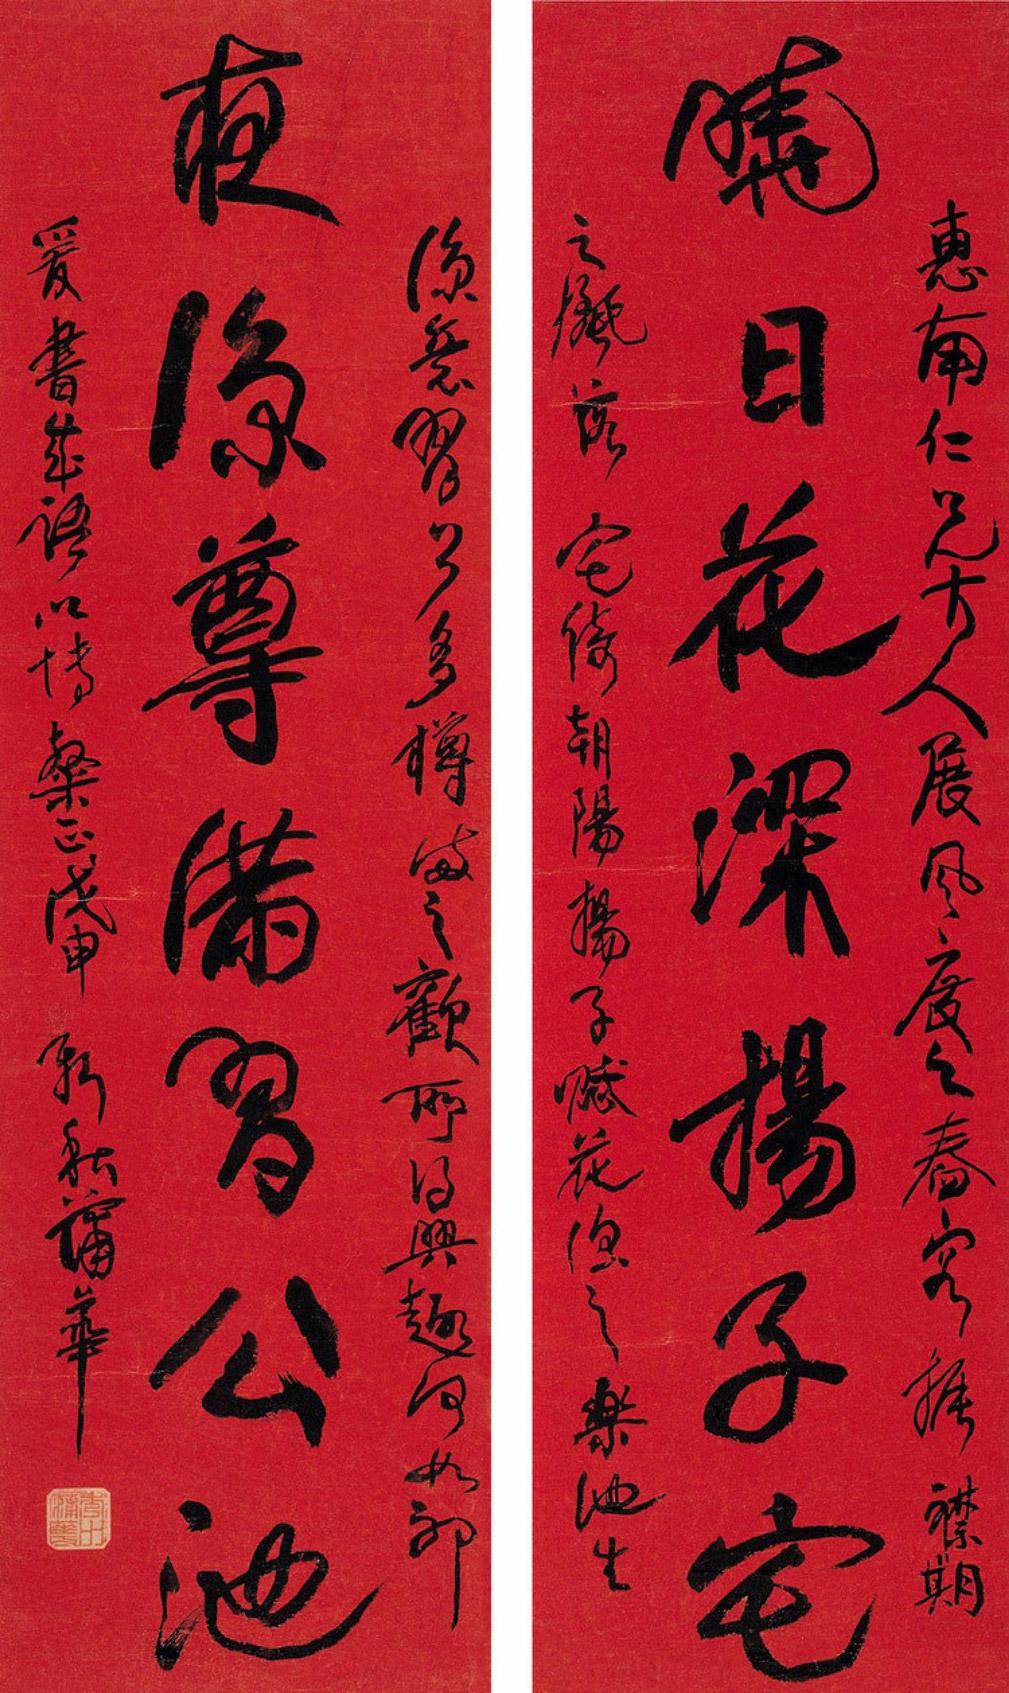 惠甫仁兄大人展風度之春容振襟期
曉日花深揚子宅
之瀟落宅倚朝陽揚子賦花深之樂池生
涼意習公多樽滿之歡所得興趣何如耶
夜涼尊滿習公池
爰書成語以博粲正戊申新秋蒲華